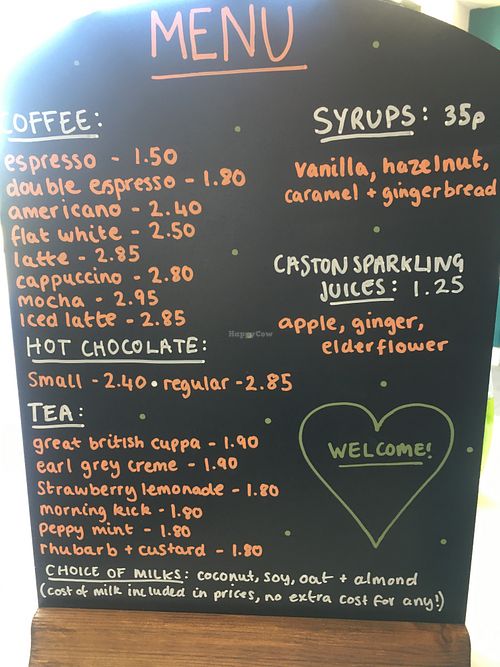 MENU
COFFEE:
espresso - 1.50
double espresso - 1.80
americano - 2.40
flat white - 2.50
latte - 2.85
cappuccino - 2.80
mocha - 2.95
iced latte - 2.85
HOT CHOCOLATE:
small - 2.40 • regular - 2.85
TEA:
great british cuppa - 1.90
earl grey creme - 1.90
strawberry lemonade - 1.80
morning kick - 1.80
peppy mint - 1.80
rhubarb + custard - 1.80
SYRUPS: 35p
vanilla, hazelnut,
caramel + gingerbread
CASTON SPARKLING
JUICES: 1.25
apple, ginger,
elderflower
WELCOME!
CHOICE OF MILKS: coconut, soy, oat + almond
(cost of milk included in prices, no extra cost for any!)
HappyCow